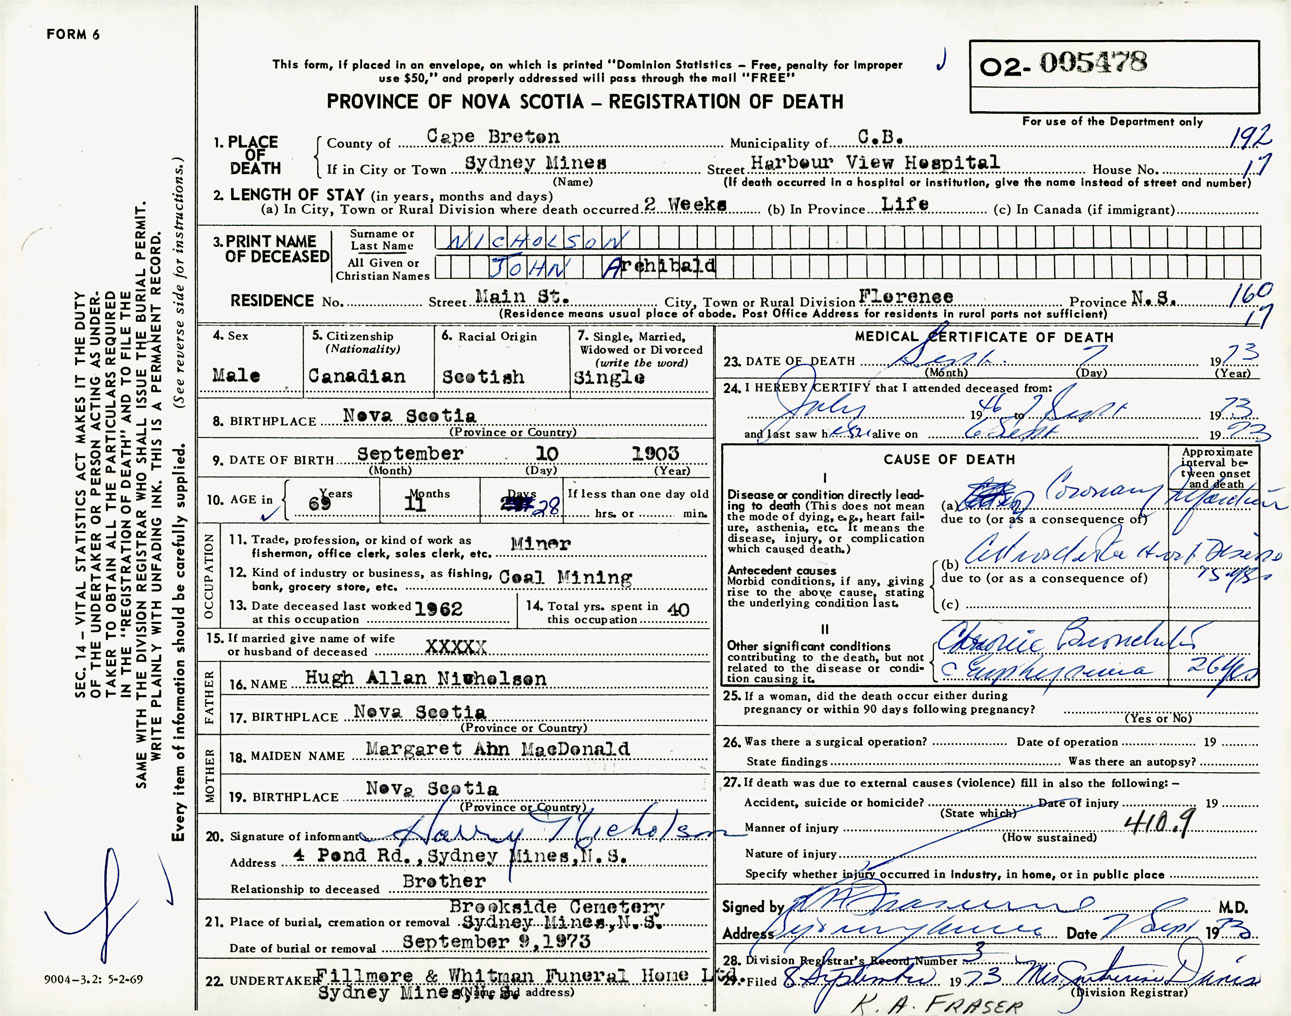 FORM 6
This form, if placed in an envelope, on which is printed "Dominion Statistics – Free, penalty for improper
use $50," and properly addressed will pass through the mail "FREE"
PROVINCE OF NOVA SCOTIA – REGISTRATION OF DEATH
O2- 005478
For use of the Department only
1. PLACE OF DEATH
County of Cape Breton Municipality of C.B. 192
If in City or Town Sydney Mines Street Harbour View Hospital House No. 17
(Name) (If death occurred in a hospital or institution, give the name instead of street and number)
2. LENGTH OF STAY (in years, months and days)
(a) In City, Town or Rural Division where death occurred 2 Weeks (b) In Province Life (c) In Canada (if immigrant)
3. PRINT NAME OF DECEASED
Surname or Last Name NICHOLSON
All Given or Christian Names JOHN Archibald
RESIDENCE No. Street Main St. City, Town or Rural Division Florence Province N.S. 160
(Residence means usual place of abode. Post Office Address for residents in rural parts not sufficient) 17
4. Sex
Male
5. Citizenship
(Nationality)
Canadian
6. Racial Origin
Scotish
7. Single, Married,
Widowed or Divorced
(write the word)
Single
8. BIRTHPLACE Nova Scotia
(Province or Country)
9. DATE OF BIRTH September 10 1903
(Month) (Day) (Year)
10. AGE in Years Months Days If less than one day old
69 11 28 hrs. or min.
OCCUPATION
11. Trade, profession, or kind of work as
fisherman, office clerk, sales clerk, etc. Miner
12. Kind of industry or business, as fishing,
bank, grocery store, etc. Coal Mining
13. Date deceased last worked
at this occupation 1962
14. Total yrs. spent in
this occupation 40
15. If married give name of wife
or husband of deceased XXXXX
FATHER
16. NAME Hugh Allan Nicholson
17. BIRTHPLACE Nova Scotia
(Province or Country)
MOTHER
18. MAIDEN NAME Margaret Ann MacDonald
19. BIRTHPLACE Nova Scotia
(Province or Country)
20. Signature of informant Harry Nicholson
Address 4 Pond Rd., Sydney Mines, N.S.
Relationship to deceased Brother
Brookside Cemetery
21. Place of burial, cremation or removal Sydney Mines, N.S.
Date of burial or removal September 9, 1973
22. UNDERTAKER Fillmore & Whitman Funeral Home Ltd.
Sydney Mines, N.S.
(Name and address)
MEDICAL CERTIFICATE OF DEATH
23. DATE OF DEATH Sept. 7 1973
(Month) (Day) (Year)
24. I HEREBY CERTIFY that I attended deceased from:
July 1946 to 7 Sept 1973
and last saw h alive on 6 Sept 1973
CAUSE OF DEATH
Approximate
interval be-
tween onset
and death
I
Disease or condition directly lead-
ing to death (This does not mean
the mode of dying, e.g., heart fail-
ure, asthenia, etc. It means the
disease, injury, or complication
which caused death.)
(a) Coronary
due to (or as a consequence of)
Antecedent causes
Morbid conditions, if any, giving
rise to the above cause, stating
the underlying condition last.
(b) Heart Disease
due to (or as a consequence of) 15 yrs
(c)
II
Other significant conditions
contributing to the death, but not
related to the disease or condi-
tion causing it.
Chronic Bronchitis
c Emphysema 26 yrs
25. If a woman, did the death occur either during
pregnancy or within 90 days following pregnancy?
(Yes or No)
26. Was there a surgical operation? Date of operation 19
State findings Was there an autopsy?
27. If death was due to external causes (violence) fill in also the following: –
Accident, suicide or homicide? Date of injury 19
(State which)
Manner of injury 410.9
(How sustained)
Nature of injury
Specify whether injury occurred in industry, in home, or in public place
Signed by M.D.
Address Sydney Mines Date 7 Sept 1973
28. Division Registrar's Record Number 3
29. Filed 8 September 1973 Mrs. Davis
(Division Registrar)
K. A. FRASER
SEC. 14 – VITAL STATISTICS ACT MAKES IT THE DUTY
OF THE UNDERTAKER OR PERSON ACTING AS UNDER-
TAKER TO OBTAIN ALL THE PARTICULARS REQUIRED
IN THE "REGISTRATION OF DEATH" AND TO FILE THE
SAME WITH THE DIVISION REGISTRAR WHO SHALL ISSUE THE BURIAL PERMIT.
WRITE PLAINLY WITH UNFADING INK. THIS IS A PERMANENT RECORD.
Every item of information should be carefully supplied. (See reverse side for instructions.)
9004-3.2: 5-2-69